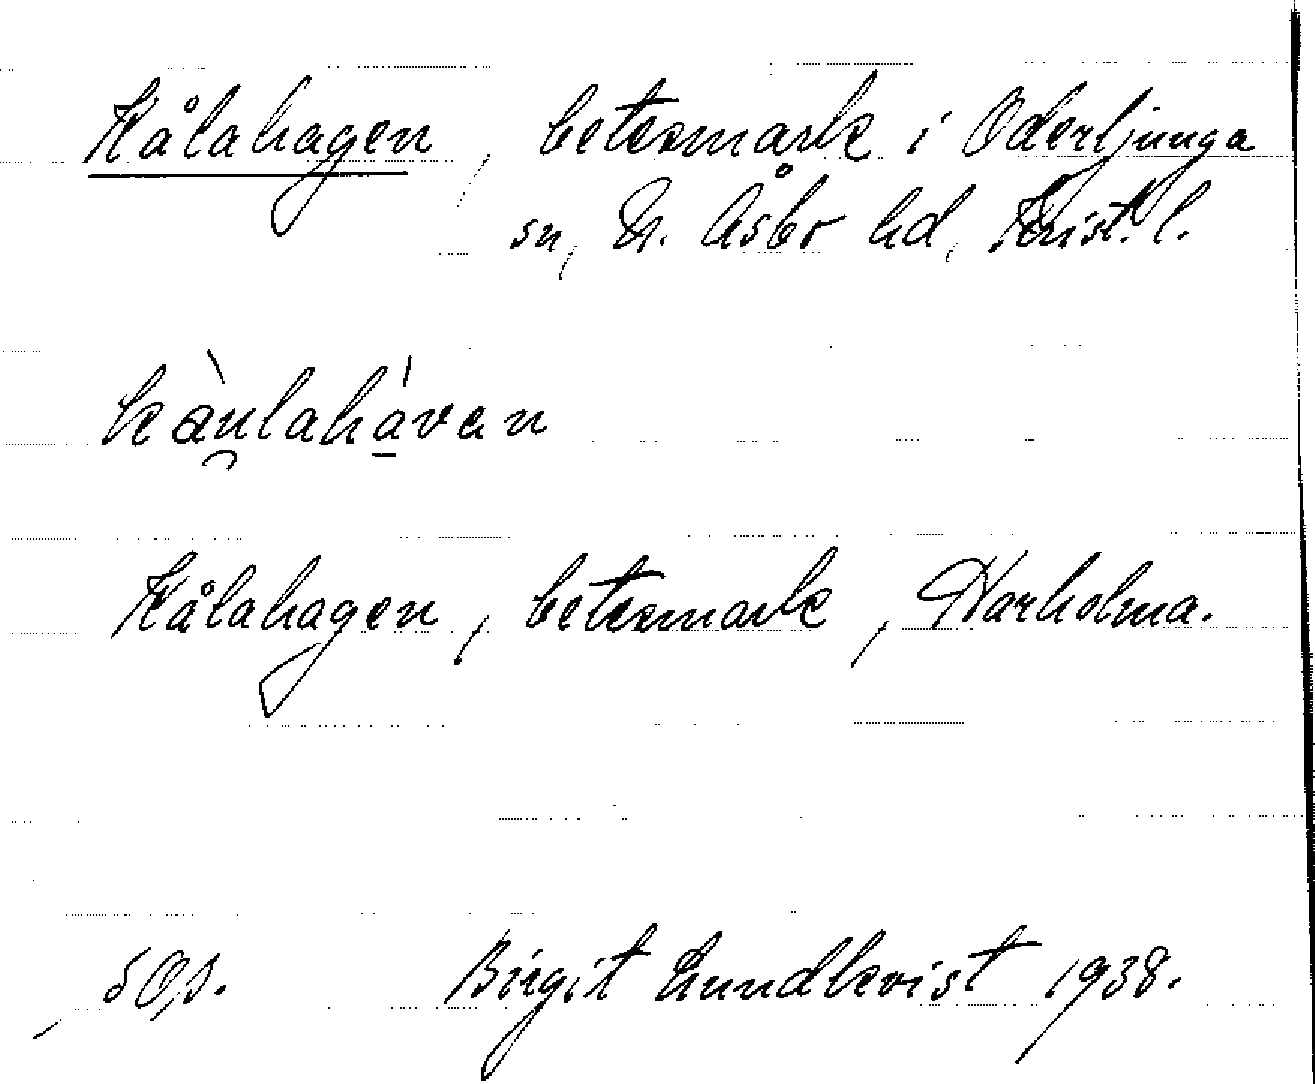 Kålahagen, betesmark i Oderljunga
sn, N. Åsbo hd, Krist. l.
kàu̯lahá̱van
Kålahagen, betesmark, Harholma.
Birgit Lundkvist 1938.